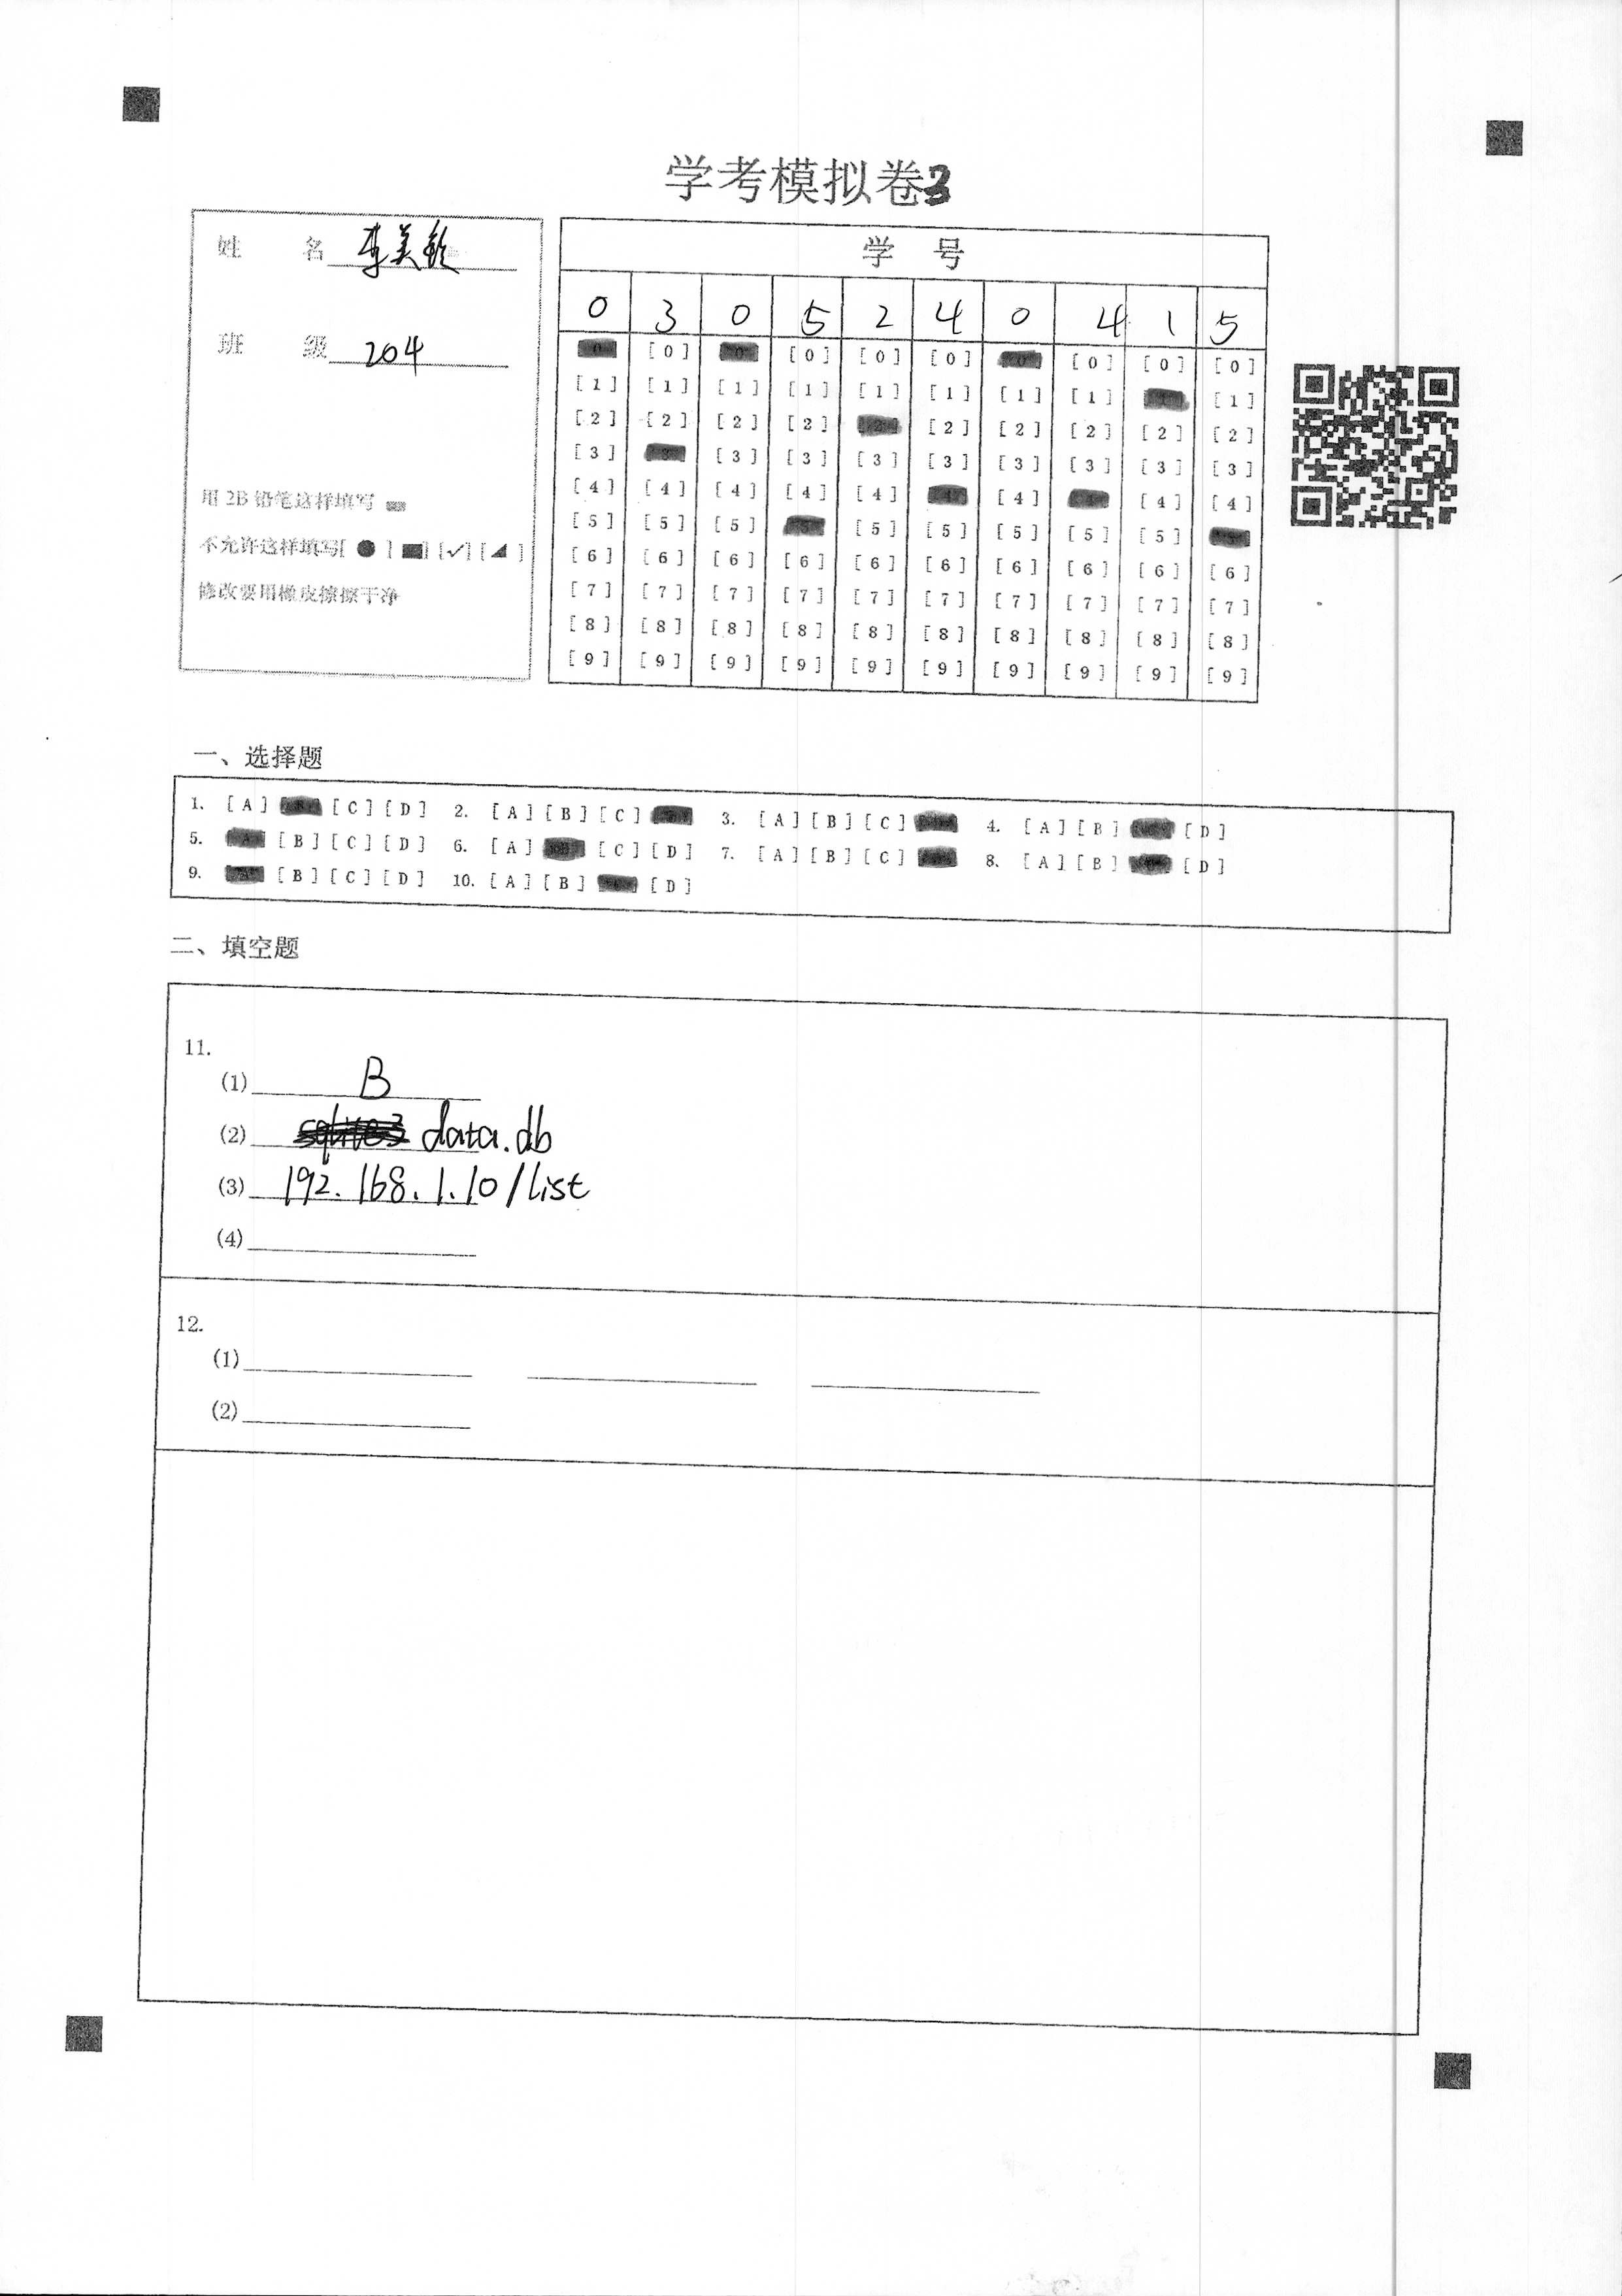 学考模拟卷3
姓 名 李美
班 级 204
用 2B 铅笔这样填写
不允许这样填写[ ● ] [■] [✓] [◢ ]
修改要用橡皮擦擦干净
学 号
0 3 0 5 2 4 0 4 1 5
[0] [0] [0] [0] [0] [0] [0] [0] [0] [0]
[1] [1] [1] [1] [1] [1] [1] [1] [1] [1]
[2] [2] [2] [2] [2] [2] [2] [2] [2] [2]
[3] [3] [3] [3] [3] [3] [3] [3] [3] [3]
[4] [4] [4] [4] [4] [4] [4] [4] [4] [4]
[5] [5] [5] [5] [5] [5] [5] [5] [5] [5]
[6] [6] [6] [6] [6] [6] [6] [6] [6] [6]
[7] [7] [7] [7] [7] [7] [7] [7] [7] [7]
[8] [8] [8] [8] [8] [8] [8] [8] [8] [8]
[9] [9] [9] [9] [9] [9] [9] [9] [9] [9]
一、选择题
1. [A] [B] [C] [D] 2. [A] [B] [C] [D] 3. [A] [B] [C] [D] 4. [A] [B] [C] [D]
5. [A] [B] [C] [D] 6. [A] [B] [C] [D] 7. [A] [B] [C] [D] 8. [A] [B] [C] [D]
9. [A] [B] [C] [D] 10. [A] [B] [C] [D]
二、填空题
11.
(1) B
(2) sqlite3 data.db
(3) 192.168.1.10/list
(4)
12.
(1)
(2)